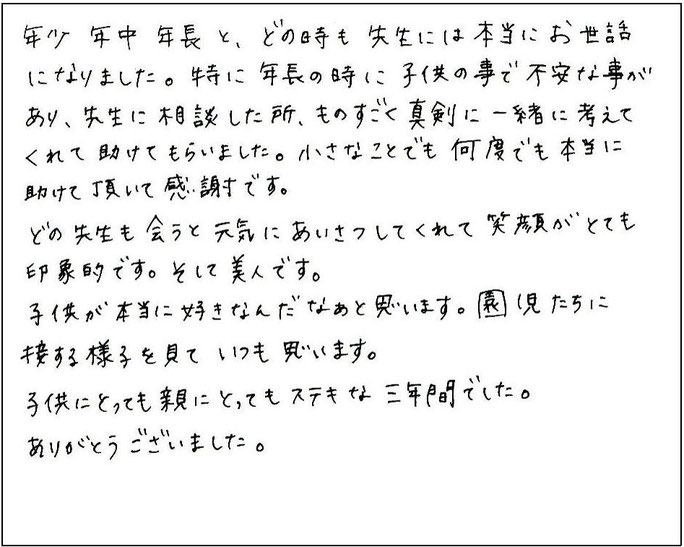 年少 年中 年長 と、どの時も 先生には 本当に お世話
になりました。特に 年長の時に 子供の事で 不安な事が
あり、先生に 相談した所、ものすごく 真剣に 一緒に 考えて
くれて 助けてもらいました。小さなことでも 何度でも 本当に
助けて 頂いて 感謝です。
どの先生も 会うと 元気に あいさつしてくれて 笑顔がとても
印象的です。そして 美人です。
子供が 本当に 好きなんだなあと 思います。園児たちに
接する 様子を見て いつも 思います。
子供にとっても 親にとっても ステキな 三年間でした。
ありがとうございました。